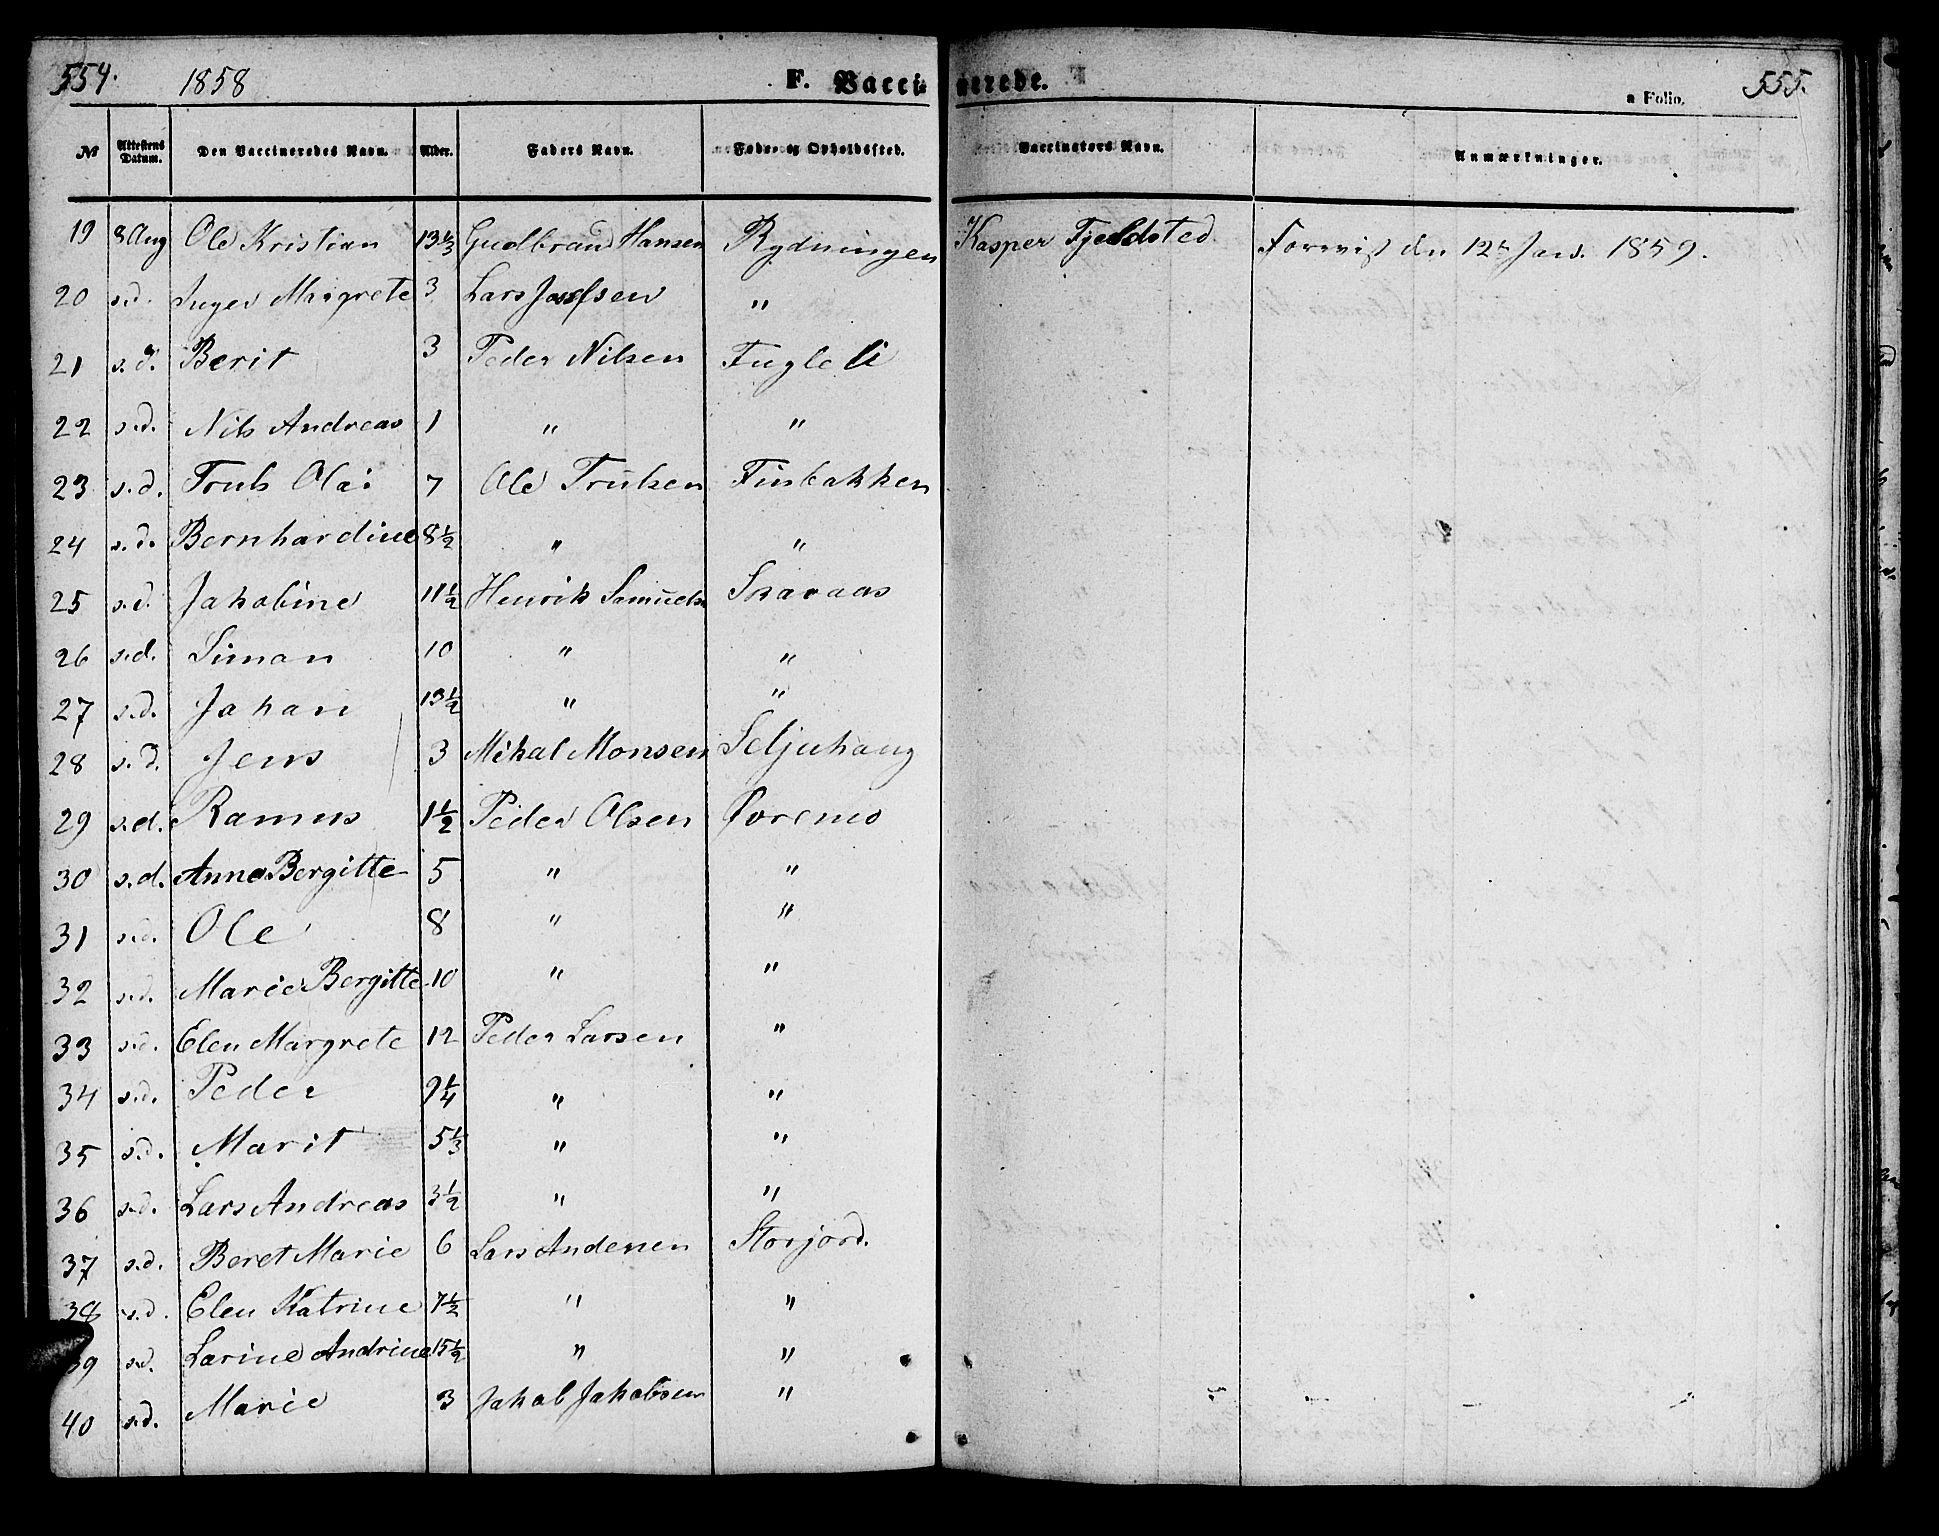 554. 1858 F. Vaccinerede. a Folio. 555.
No Attestens Datum. Den Vaccineredes Navn. Alder. Faders Navn. Føde- og Opholdssted. Vaccinators Navn. Anmærkninger.
19 8 Aug Ole Kristian 13 1/3 Gudbrand Hansen Rydningen Kasper Fjeldsted Forevist den 12te Jan. 1859.
20 s.d. Inger Margrete 3 Lars Josefsen "
21 s.d. Berit 3 Peder Nilsen Fugleli
22 s.d. Nils Andreas 1 " "
23 s.d. Truls Olai 7 Ole Trulsen Finbakken
24 s.d. Bernhardine 8 1/2 " "
25 s.d. Jakobine 11 1/2 Henrik Samuels Skavaas
26 s.d. Simon 10 " "
27 s.d. Johan 13 1/2 " "
28 s.d. Jens 3 Mikal Monsen Seljuhaug
29 s.d. Ramus 1 1/2 Peder Olsen Øvremo
30 s.d. Anna Bergitte 5 " "
31 s.d. Ole 8 " "
32 s.d. Marie Bergitte 10 " "
33 s.d. Elen Margrete 12 Peder Larsen "
34 s.d. Peder 9 1/4 " "
35 s.d. Marit 5 1/3 " "
36 s.d. Lars Andreas 3 1/2 " "
37 s.d. Beret Marie 6 Lars Andersen Storjord.
38 s.d. Elen Katrine 7 1/2 " "
39 s.d. Larine Andrine 15 1/2 " "
40 s.d. Marie 3 Jakob Jakobsen "